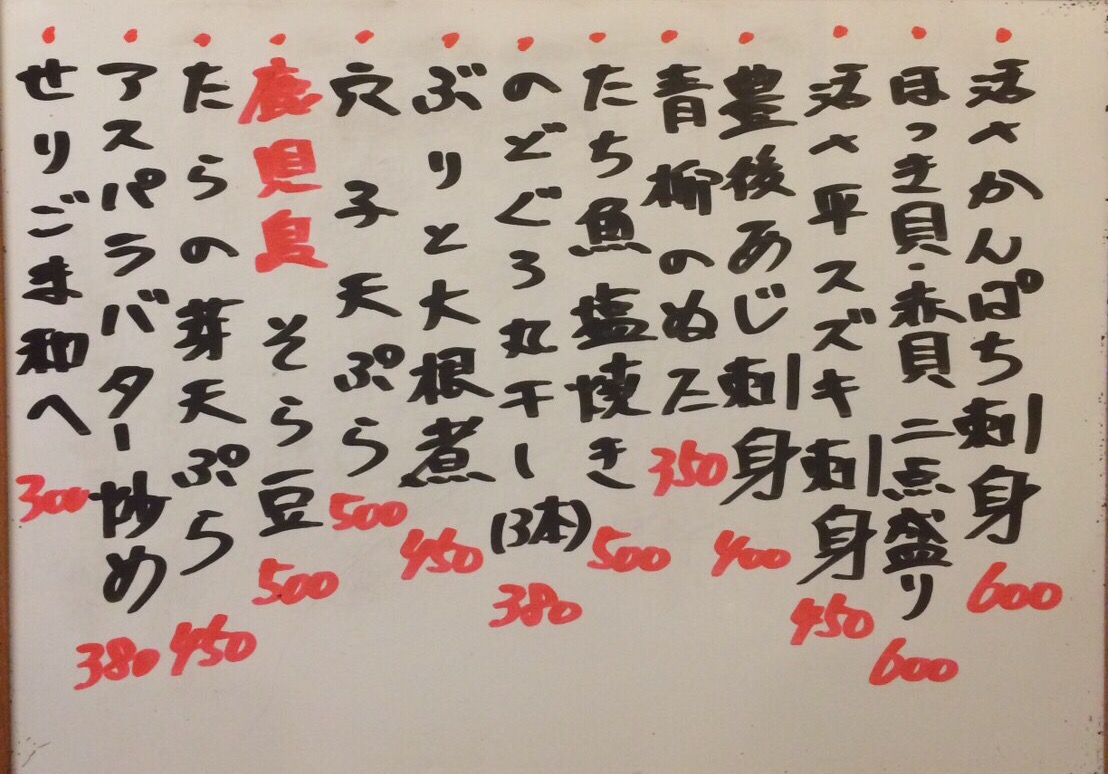 活〆かんぱち刺身 600
ほっき貝・赤貝 二点盛り 600
活〆平スズキ刺身 450
豊後あじ刺身 400
青柳のぬた 350
たち魚塩焼き 500
のどぐろ丸干し(3本) 380
ぶりと大根煮 450
穴子天ぷら 500
鹿児島 そら豆 500
たらの芽天ぷら 450
アスパラバター炒め 380
せりごま和へ 300